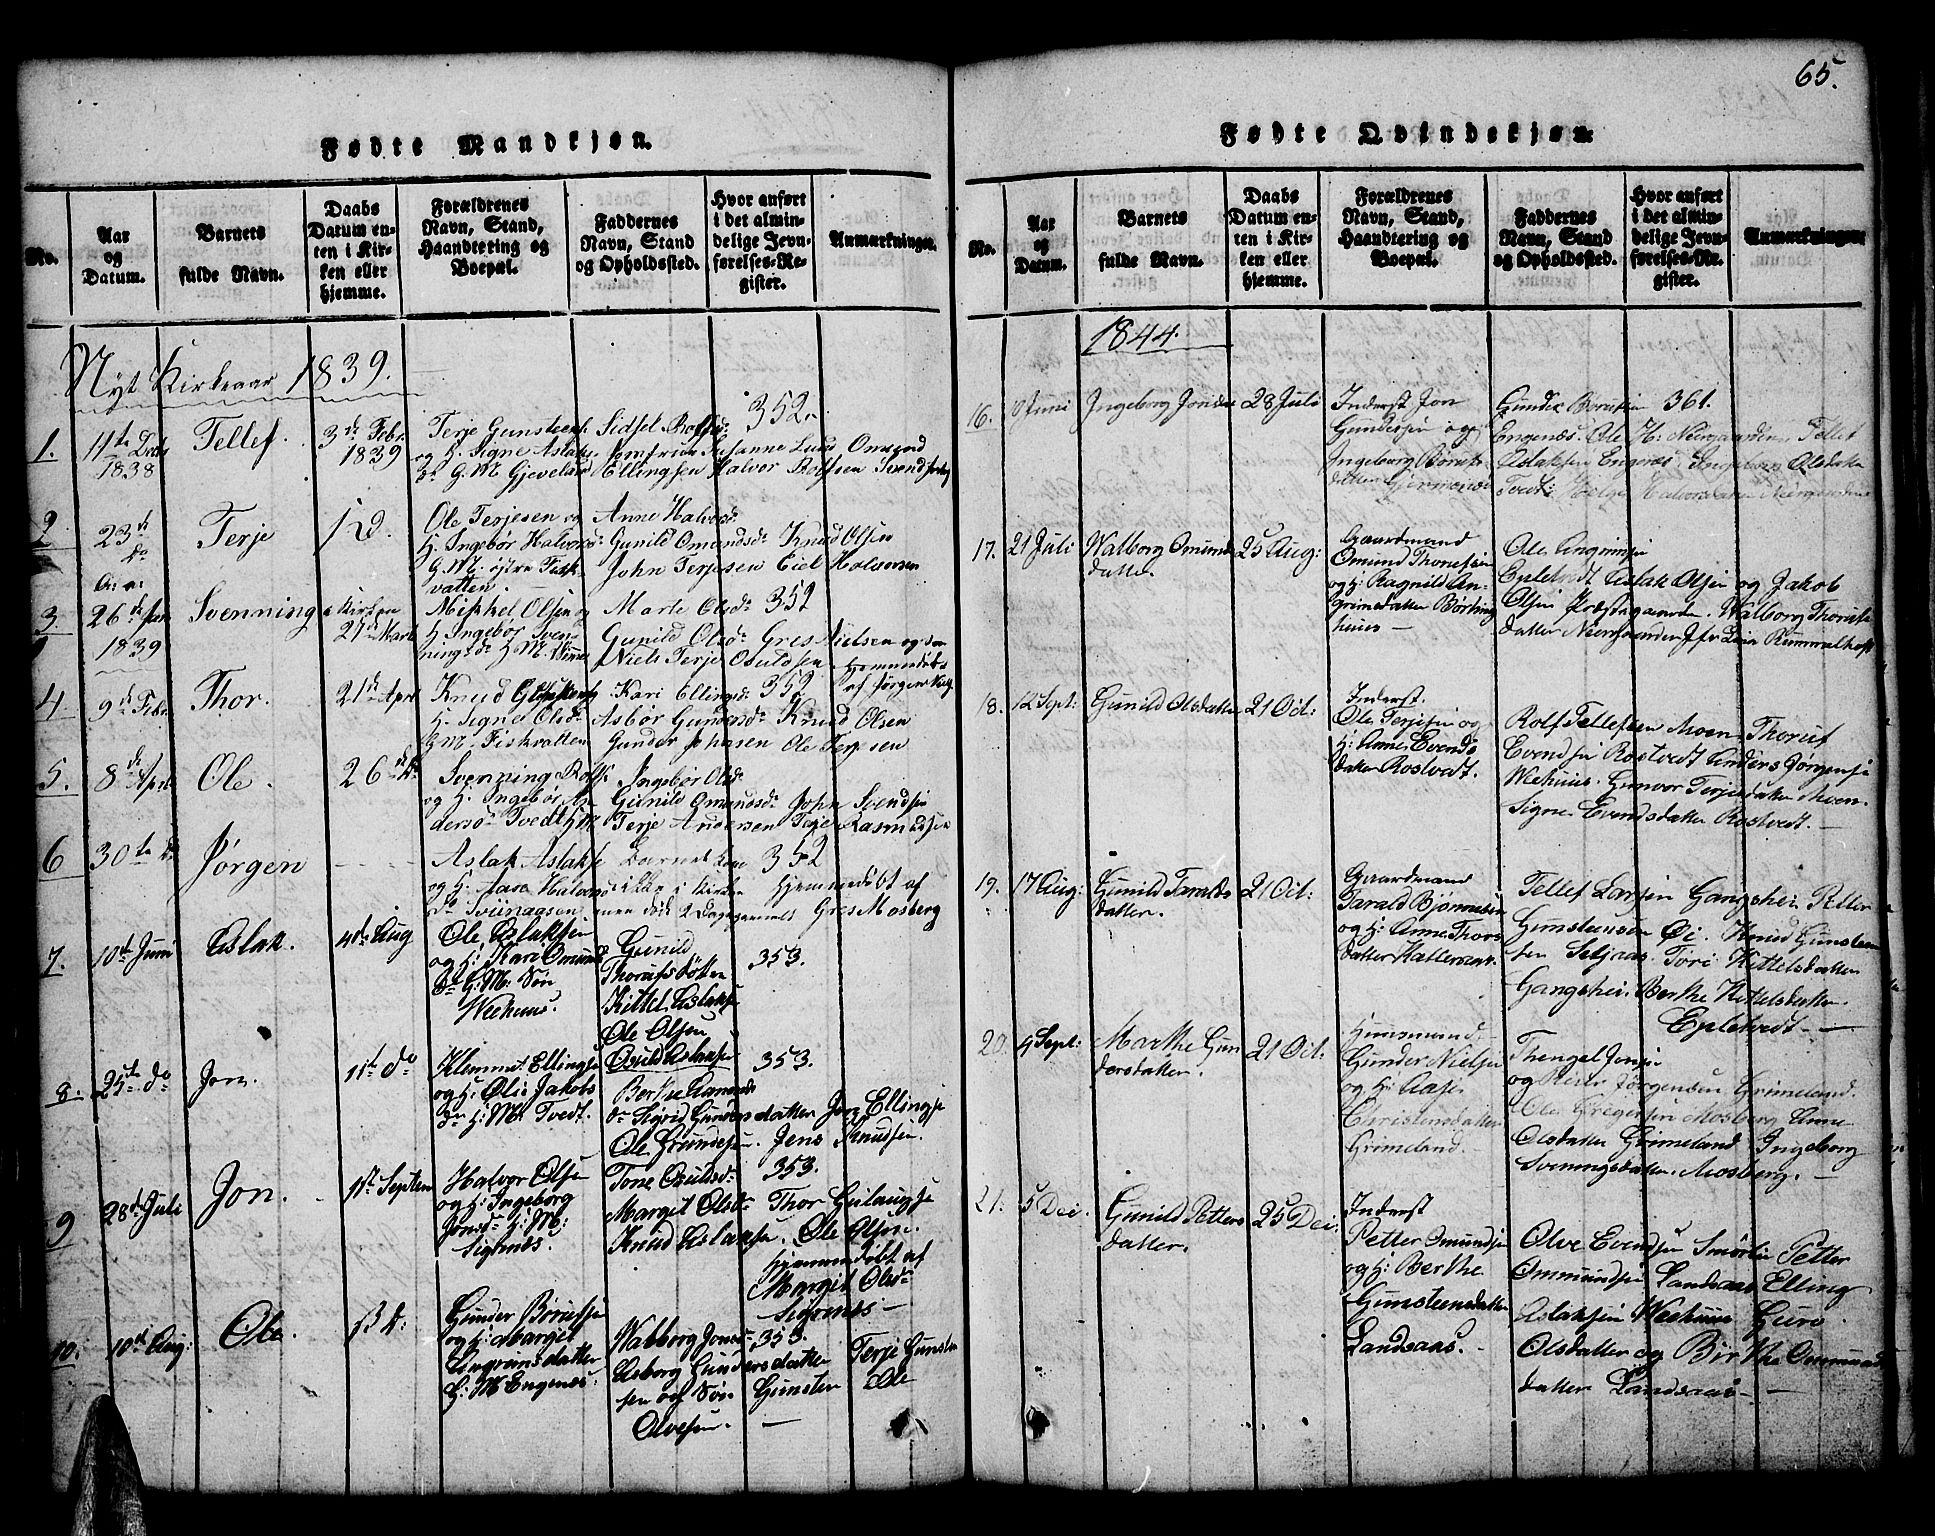 65.
Fødte Mandkjøn.
No.
Aar
og
Datum.
Barnets
fulde Navn.
Daabs
Datum en-
ten i Kir-
ken eller
hjemme.
Forældrenes
Navn, Stand,
Haandtering og
Boepæl.
Faddernes
Navn, Stand
og Opholdssted.
Hvor anført
i det almin-
delige Jevn-
førelses-Re-
gister.
Anmærkninger.
Nyt Kirkeaar 1839.
1.
11te Decbr
1838
Tellef.
3de Febr.
1839
Terje Gunsteens.
og H. Signe Aslaks
G. M. Gjeveland
Sidsel Rolfsd.
Jomfrue Susanne Lund Omund
Ellingsen Halvor Rolfsen
352.
2
23de
do
Terje
1 d.
Ole Terjesen og
H. Ingebør Halvorsd.
G. M. østre Fisk-
vatten.
Anne Halvorsd.
Gunild Omundsd. Knud Olsen
John Terjesen Eiel Halvorsen
3
26de Jan
1839
Svenning
i Kirken
21de Mart
Mikkel Olsen og
H. Ingebør Sven-
ningsd.
Marte Olsd. 352
Gunild Olsd. Gres Nielsen og
Niels Terje Osuldsen
Hjemmedøbt
af Jørgen
4
9de Febr.
Thor.
21de April
Knud
H. Signe Olsd.
G. M. Fiskvatten
Kari Ellingsd. 352
Asbør Gundersd. Knud Olsen
Gunder Johnsen Ole Terjesen
5.
8de April
Ole.
26de do
Svenning Rolfs.
og H. Ingebør An-
dersd. Tvedt G. M.
Ingebør Olsd.
Gunild Omundsd. John Svendsen
Terje Andersen Terje Rasmussen
6
30te do
Jørgen
Aslak Aslakse
og H. Aase Halvorsd
Sviinaasen
Barnet kom 352
ikke i Kirken Hjemmedøbt af
men døde 2 Dage gammelt Gres Mosberg
7.
10de Juni
Aslak.
4de Aug
Ole Aslaksen
og H. Kari Omunds
G. M. Søn
Weehuus.
Gunild
Thorufsdatter
Kittel Aslaks.
Ole Olsen
Osuld Aslaksen
353.
8.
25te do
Jon.
11te do
Klemmet Ellingse
og H. Olie Jakobs
G. M. Tvedt.
Berthe
Sigrid Gundersdatter Jens Ellingse
Ole Gundersen. Jens Knudsen.
353.
9
28de Juli
Jon.
1ste Septem
Halvor Olsen
og H. Ingeborg
Jonsd. G. M.
Sigernes.
Tone Osuldsd. 353.
Margit Olsd. Thor Gulaugse
Knud Aslakse. Ole Olsen.
Hjemmedøbt af
Margit Olsd.
Sigernes
10.
10de Aug.
Ole.
1 d.
Gunder Børufse
og H. Marget
Angrimsdatter
G. M. Engenes.
Walborg Jonsd. 353.
Asborg Gundersdatter Terje Gunste
sen og Søn Gunsten Ole
Olvesen.
Fødte Qvindekjøn.
No.
Aar
og
Datum.
Barnets
fulde Navn.
Daabs
Datum en-
ten i Kir-
ken eller
hjemme.
Forældrenes
Navn, Stand,
Haandtering og
Boepæl.
Faddernes
Navn, Stand
og Opholdssted.
Hvor anført
i det almin-
delige Jevn-
førelses-Re-
gister.
Anmærkninger.
1844.
16.
Juni
Ingeborg Jonsdr
28 Juli
Inderst Jon
Gundersen og
Ingeborg Børufs-
datter
Gunder Børufsen 361.
Engenæs. Ole H. Neergaarden. Tellef
Aslaksen Engenæs. Ingeborg Olsdatter
Tvedt. Helge Halvorsdatter Neergarden
17.
21 Juli
Walborg Omunds
datter.
25 Aug:
Gaardmand
Omund Thorufsen
og H. Ragnild An-
grimsdatter Børting
huus
Ole Angrimsen
Epletvedt Aslak Olsen og Jakob
Olsen Præstegaarden. Walborg Thorufs
datter Neergaarden Jfr Lena Rummelhoff
18.
12 Sept:
Gunild Olsdatter
21 Oct:
Inderst.
Ole Terjesen og
H. Anne Evends
datter Rostvedt.
Rolf Tellefsen Moen. Thoruf
Evendsen Rostvedt Anders Jørgensen
Weehuus. Gunvor Terjesdatter Moen.
Signe Evendsdatter Rostvedt.
19.
17 Aug:
Gunild Taralds
datter.
21 Oct:
Gaardmand
Tarald Bjørnsen
og H. Anne Thors
datter
Tellef Larsen Gangshei. Petter
Gunsteensen Øi. Knud Gunsteen
sen Seljaas. Tori Kittelsdatter
Gangshei. Berthe Kittelsdatter
Epletvedt
20.
4 Sept:
Marthe Gun
dersdatter.
21 Oct:
Huusmand
Gunder Nielsen
og H. Aase
Christensdatter
Grimeland.
Thengel Jonsen
og Reier Jørgensen Grimeland.
Ole Gregersen Mosberg Anne
Olsdatter Grimeland Ingeborg
Sveningsdatter Mosberg.
21.
5 Dec.
Gunild Petters
datter.
25 Dec.
Inderst
Petter Omundsen
og H. Berthe
Gunsteensdatter
Landsaas.
Olve Evendsen Smørlie Petter
Ommundsen Landsaas Elling
Aslaksen Weehuus Guro
Olsdatter og Birthe Ommunds
datter Landsaas